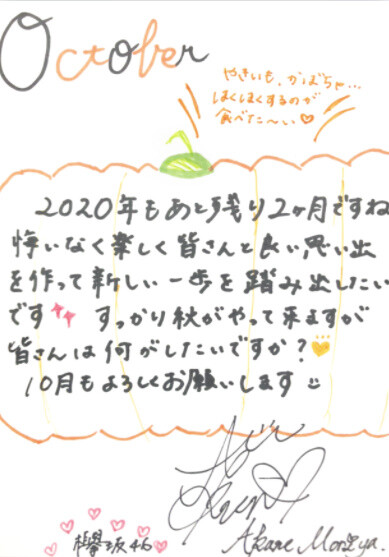 October
やきいも、かぼちゃ…
ほくほくするのが
食べた〜い♡
2020年もあと残り2ヶ月ですね
悔いなく楽しく皆さんと良い思い出
を作って新しい一歩を踏み出したい
です すっかり秋がやって来ますが
皆さんは何がしたいですか?
10月もよろしくお願いします
欅坂46
Akane Moriya.